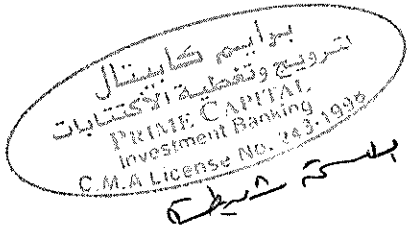 برايم كابيتال
لترويج وتغطية الاكتتابات
PRIME CAPITAL
Investment Banking
C.M.A License No. 243-1996